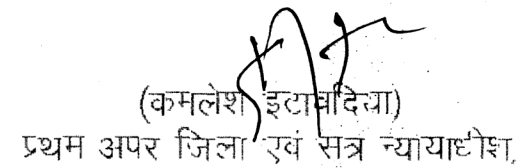 (कमलेश इटावदिया)
प्रथम अपर जिला एवं सत्र न्यायाधीश,